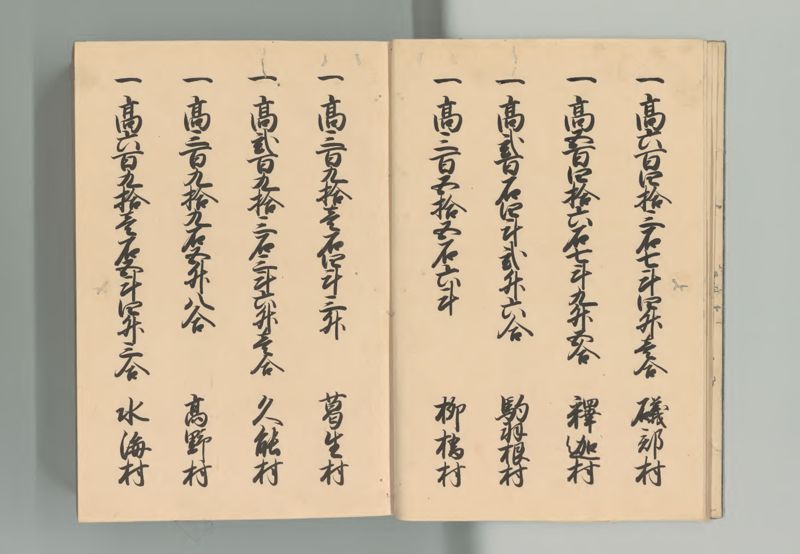 一高六百四拾三石七斗四升壱合 磯部村
一高五百四拾六石七斗九升五合 釋迦村
一高弐百石四斗弐升六合 駒羽根村
一高三百五拾五石六斗 柳橋村
一高三百九拾壱石四斗三升 葛生村
一高弐百九拾三石三斗六升壱合 久能村
一高三百九拾九石五升八合 高野村
一高六百九拾壱石五斗四升三合 水海村